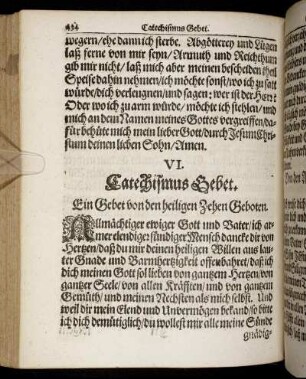 434 Catechismus Gebet.
wegern/ehe dann ich sterbe. Abgötterey und Lügen
laß ferne von mir seyn/Armuth und Reichthum
gib mir nicht/laß mich aber meinen bescheiden theil
Speise dahin nehmen/ich möchte sonst/wo ich zu satt
würde/dich verleugnen/und sagen; wer ist der Herr?
Oder wo ich zu arm würde/möchte ich stehlen/und
mich an dem Namen meines Gottes vergreiffen/da-
für behüte mich mein lieber Gott/durch Jesum Chri-
stum deinen lieben Sohn/Amen.
VI.
Catechismus Gebet.
Ein Gebet von den heiligen Zehen Geboten.
Allmächtiger ewiger Gott und Vater/ich ar-
mer elendiger sündiger Mensch dancke dir von
Hertzen/daß du mir deinen heiligen Willen aus lau-
ter Gnade und Barmhertzigkeit offenbahret/daß ich
dich meinen Gott sol lieben von gantzem Hertzen/von
gantzer Seele/von allen Kräfften/und von gantzem
Gemüth/und meinen Nechsten als mich selbst. Und
weil dir mein Elend und Unvermögen bekand/so bitte
ich dich demütiglich/du wollest mir alle meine Sünde
gnädig-